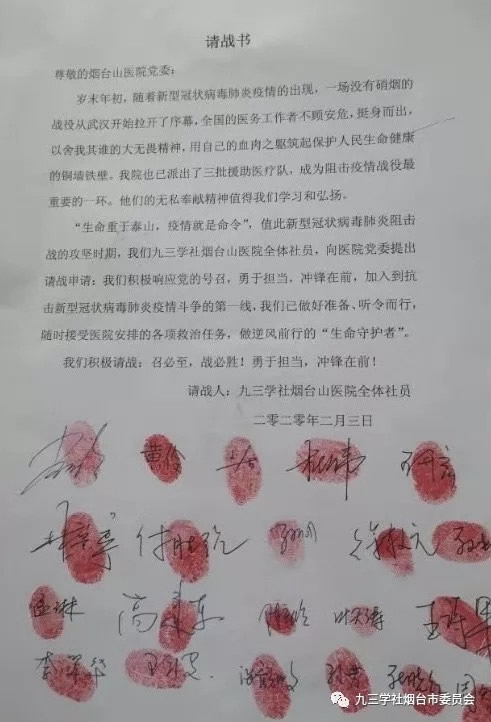 请战书
尊敬的烟台山医院党委：
岁末年初，随着新型冠状病毒肺炎疫情的出现，一场没有硝烟的
战役从武汉开始拉开了序幕，全国的医务工作者不顾安危，挺身而出，
以舍我其谁的大无畏精神，用自己的血肉之躯筑起保护人民生命健康
的铜墙铁壁。我院也已派出了三批援助医疗队，成为阻击疫情战役最
重要的一环。他们的无私奉献精神值得我们学习和弘扬。
“生命重于泰山，疫情就是命令”，值此新型冠状病毒肺炎阻击
战的攻坚时期，我们九三学社烟台山医院全体社员，向医院党委提出
请战申请：我们积极响应党的号召，勇于担当，冲锋在前，加入到抗
击新型冠状病毒肺炎疫情斗争的第一线，我们已做好准备、听令而行，
随时接受医院安排的各项救治任务，做逆风前行的“生命守护者”。
我们积极请战：召必至，战必胜！勇于担当，冲锋在前！
请战人：九三学社烟台山医院全体社员
二零二零年二月三日
九三学社烟台市委员会